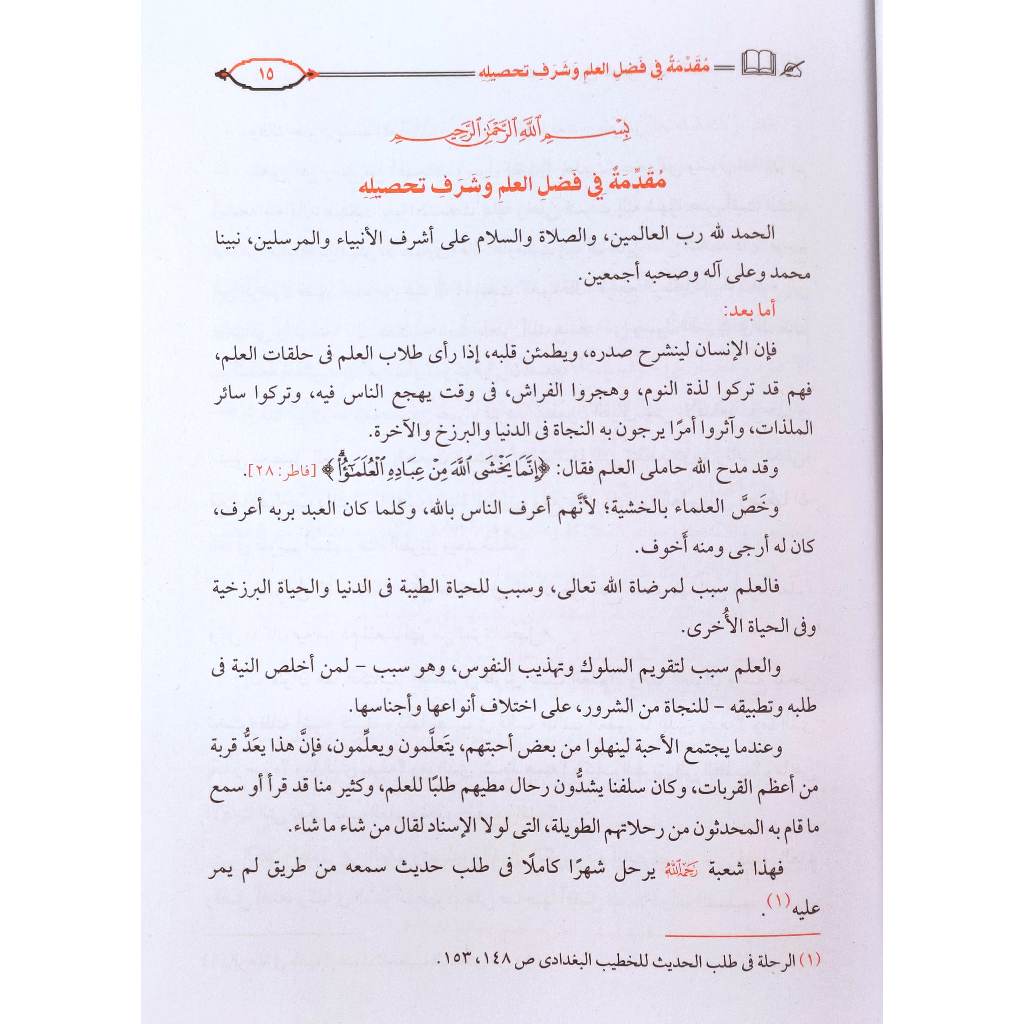 مُقَدِّمَةٌ فِي فَضلِ العلمِ وَشَرَفِ تحصيلِه
١٥
بِسْمِ اللَّهِ الرَّحْمَٰنِ الرَّحِيمِ
مُقَدِّمَةٌ فِي فَضلِ العلمِ وَشَرَفِ تحصيلِه
الحمد لله رب العالمين، والصلاة والسلام على أشرف الأنبياء والمرسلين، نبينا
محمد وعلى آله وصحبه أجمعين.
أما بعد:
فإن الإنسان لينشرح صدره، ويطمئن قلبه، إذا رأى طلاب العلم فى حلقات العلم،
فهم قد تركوا لذة النوم، وهجروا الفراش، فى وقت يهجع الناس فيه، وتركوا سائر
الملذات، وآثروا أمرًا يرجون به النجاة فى الدنيا والبرزخ والآخرة.
وقد مدح الله حاملى العلم فقال: ﴿إِنَّمَا يَخْشَى ٱللَّهَ مِنْ عِبَادِهِ ٱلْعُلَمَٰٓؤُا۟ۗ﴾ [فاطر: ٢٨].
وخَصَّ العلماء بالخشية؛ لأنَّهم أعرف الناس بالله، وكلما كان العبد بربه أعرف،
كان له أرجى ومنه أَخوف.
فالعلم سبب لمرضاة الله تعالى، وسبب للحياة الطيبة فى الدنيا والحياة البرزخية
وفى الحياة الأُخرى.
والعلم سبب لتقويم السلوك وتهذيب النفوس، وهو سبب – لمن أخلص النية فى
طلبه وتطبيقه – للنجاة من الشرور، على اختلاف أنواعها وأجناسها.
وعندما يجتمع الأحبة لينهلوا من بعض أحبتهم، يتَعلَّمون ويعلِّمون، فإنَّ هذا يعَدُّ قربة
من أعظم القربات، وكان سلفنا يشدُّون رحال مطيهم طلبًا للعلم، وكثير منا قد قرأ أو سمع
ما قام به المحدثون من رحلاتهم الطويلة، التى لولا الإسناد لقال من شاء ما شاء.
فهذا شعبة رَحِمَهُ ٱللَّهُ يرحل شهرًا كاملًا فى طلب حديث سمعه من طريق لم يمر
عليه(١).
(١) الرحلة فى طلب الحديث للخطيب البغدادى ص ١٤٨، ١٥٣.